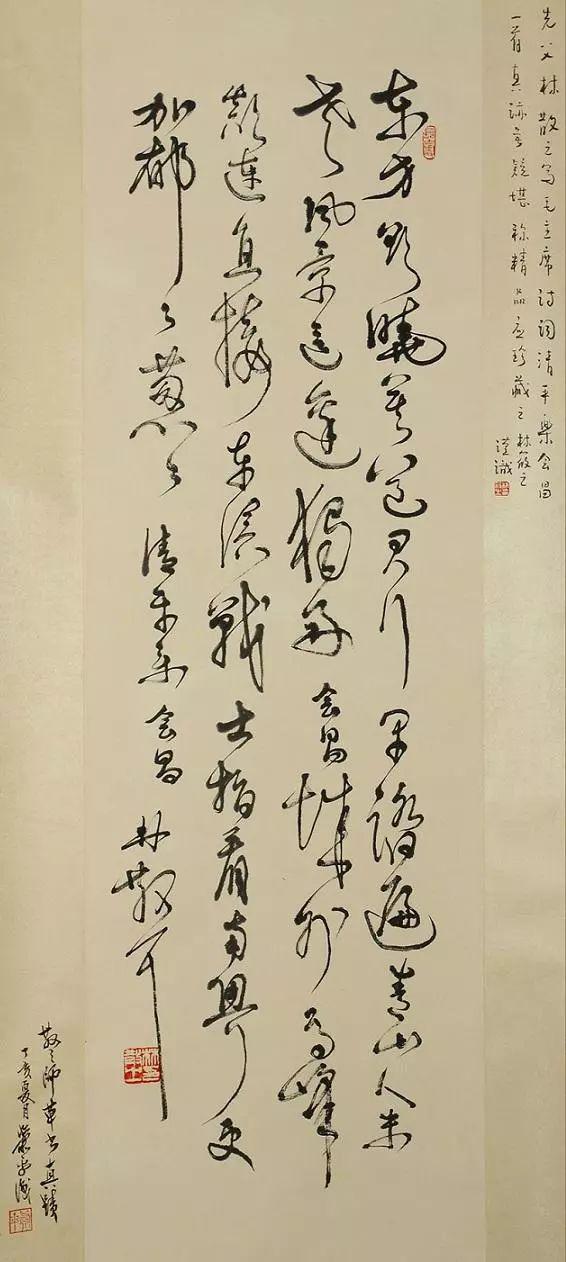 先父林散之写毛主席詩詞清平樂会昌
一首真跡无疑堪称精品應珍藏之林筱之
谨識
东方欲曉莫道君行早踏遍青山人未
老风景這邊獨好会昌城外高峰
颠連直接东溟戰士指看南粤更
加郁々葱々清平乐会昌林散耳
散之师草书真蹟
丁亥夏月